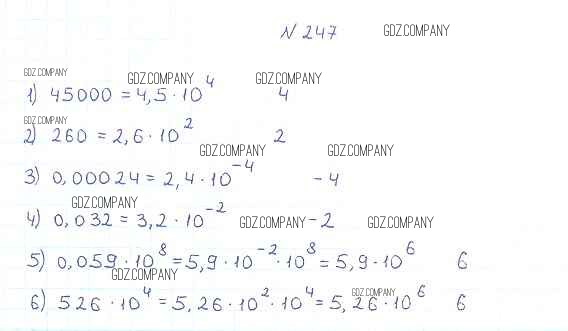 N 247 GDZ.COMPANY
GDZ.COMPANY GDZ.COMPANY GDZ.COMPANY
1) 45000 = 4,5 · 10⁴ 4
GDZ.COMPANY
2) 260 = 2,6 · 10² 2
GDZ.COMPANY GDZ.COMPANY
3) 0,00024 = 2,4 · 10⁻⁴ -4
GDZ.COMPANY
4) 0,032 = 3,2 · 10⁻² GDZ.COMPANY -2 GDZ.COMPANY
5) 0,059 · 10⁸ = 5,9 · 10⁻² · 10⁸ = 5,9 · 10⁶ 6
GDZ.COMPANY GDZ.COMPANY
6) 526 · 10⁴ = 5,26 · 10² · 10⁴ = 5,26 · 10⁶ 6